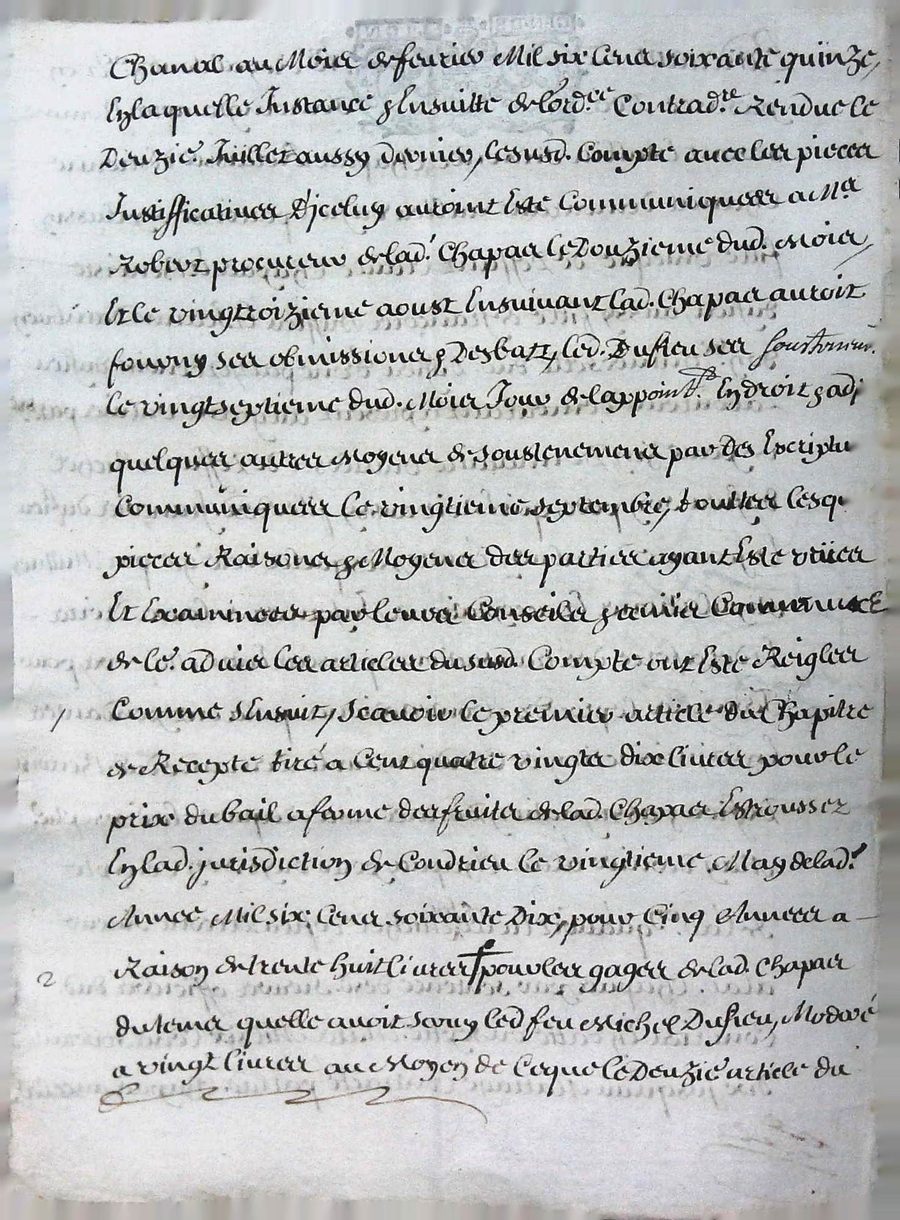 Chanal au Mois de fevrier Mil six Cens soixante quinze,
En laquelle Instance & Ensuitte de l'ord.ce Contrad.re Rendue le
Deuzie. Juillet aussy dernier, le susd. Compte avec les pieces
Justifficatives d'jceluy auroint Este Communiquees a M.e
Robert procureur de lad. Chapas le Douzieme dud. Mois,
Et le vingtroizieme aoust Ensuivant lad. Chapas auroit
fourny ses obmissions & Desbatz, led. Dufieu ses soustenem.
le vingtseptieme dud. Mois Jour de lappoint.t En droit & adj
quelques autres Moyens de soustenemens par Des Escriptu
Communiquees le vingtieme septembre, touttes lesq
pieces Raisons & Moyens des parties ayant Este veües
Et Examinees par leurs Conseils
de le. advis les articles du susd. Compte ont Este Reigles
Comme s'Ensuit, Scavoir le premier article du Chapitre
/ de Recepte tiré a Cent quatre vingts dix livres pour le
prix du bail a ferme des fruits de lad. Chapas Estroussez
En lad. jurisdiction de Condrieu le vingtieme May de lad.
Annee Mil six Cens soixante Dix, pour Cinq Annees a
Raison de trente huit livres pour les gages de lad. Chapas
2 du tems quelle avoit servy led. feu Michel Dufieu, Moderé
a vingt livres au Moyen de Ceque le Deuzie. article du